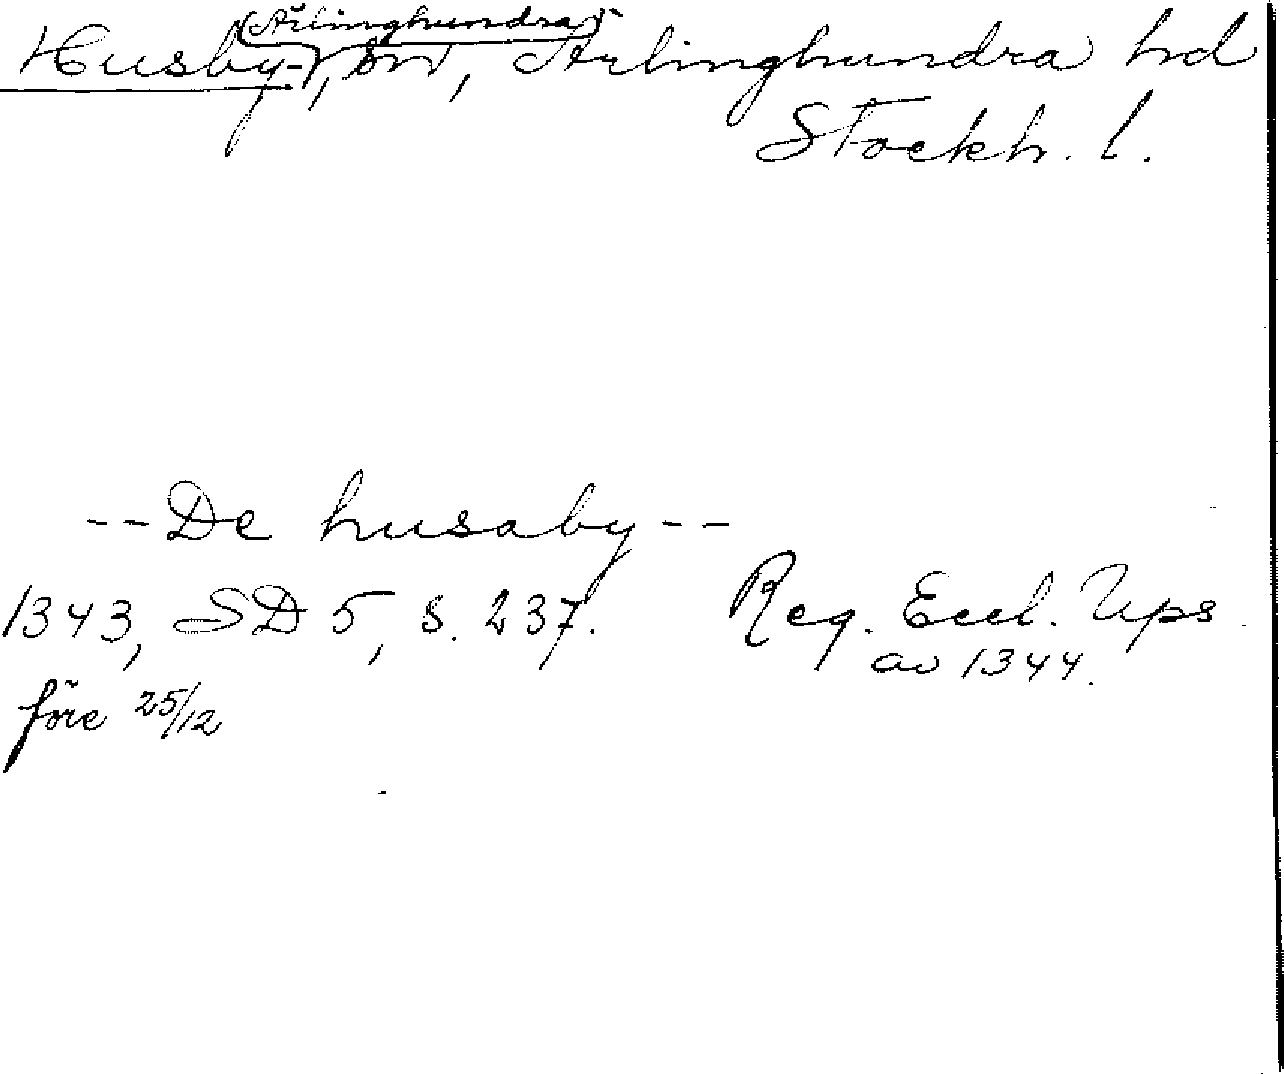 (Ärlinghundra)-
Husby-, sn, Ärlinghundra hd
Stockh. l.
--De husaby--
1343, SD 5, s. 237. Reg. Eccl. Ups
av 1344.
före 25/12